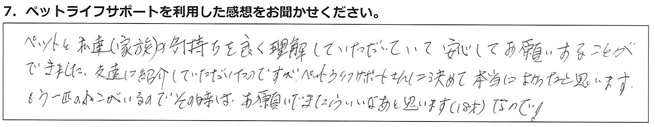 7. ペットライフサポートを利用した感想をお聞かせください。
ペットと私達(家族)の気持ちを良く理解していただいていて安心してお願いすることが
できました。友達に紹介していただいたのですがペットライフサポートさんに決めて本当によかったと思います。
もう一匹のねこがいるのでその時は、お願いできたらいいなあと思います(18才)なので!